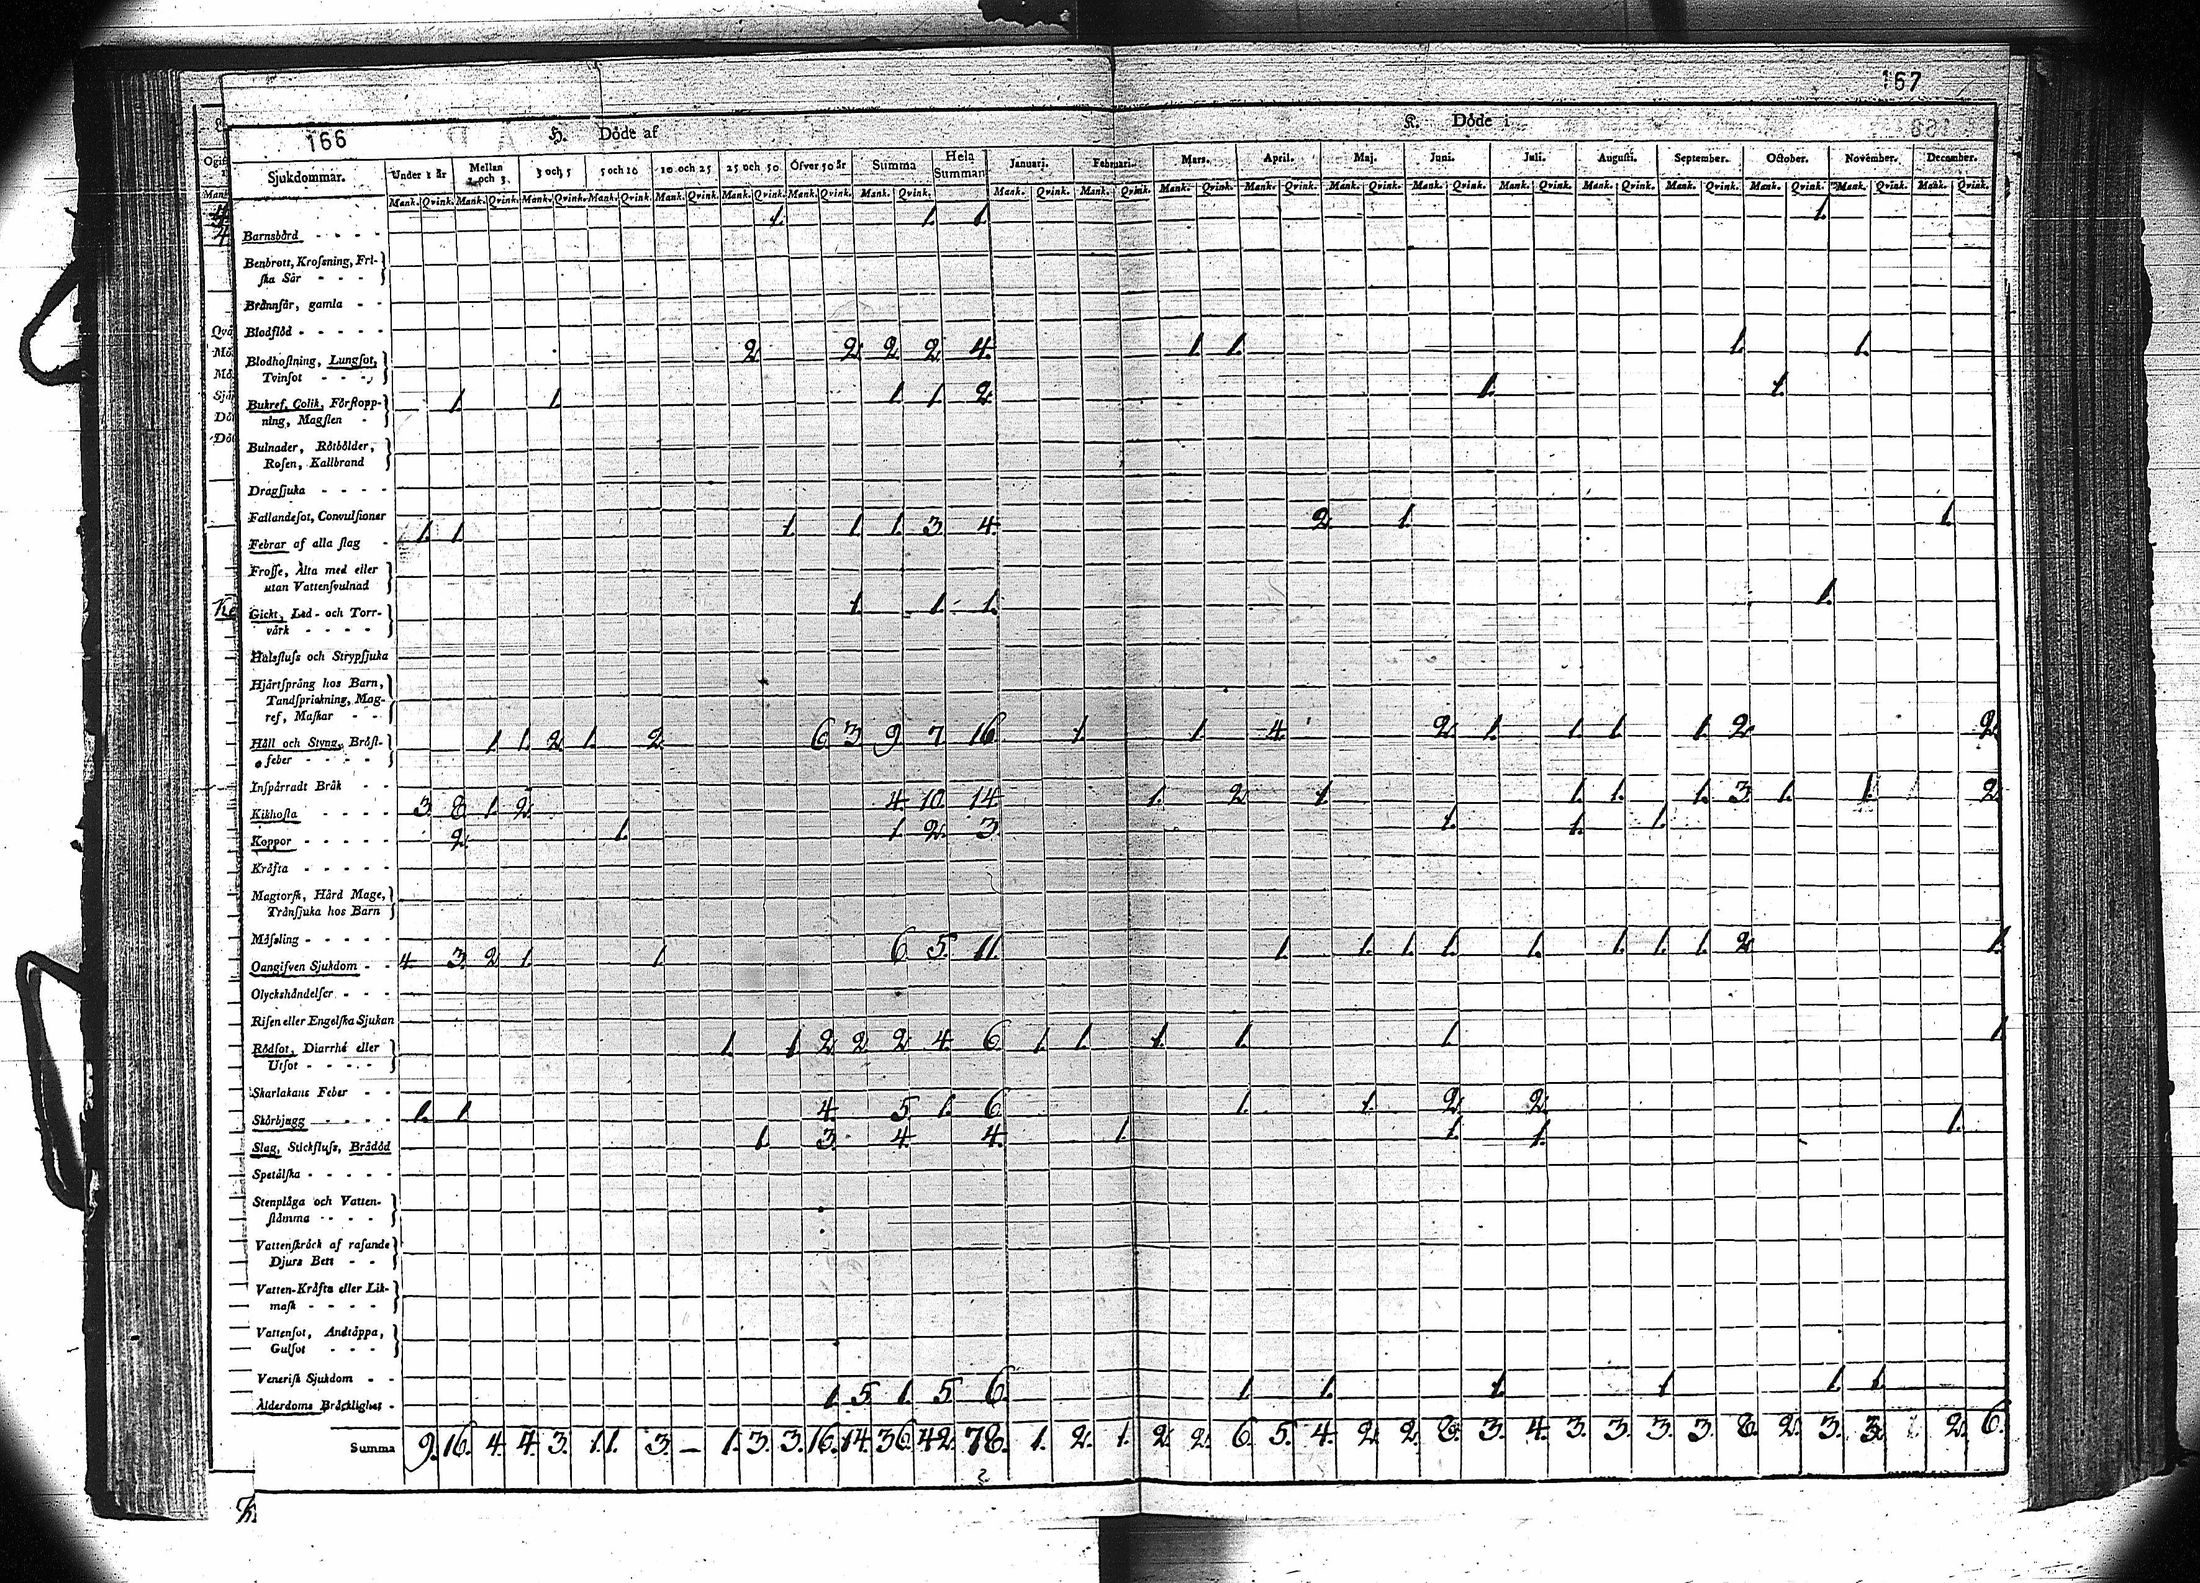 167
166 H. Döde af K. Döde i
Sjukdommar. Under 1 år Mellan 1 och 3. 3 och 5 5 och 10 10 och 25 25 och 50 Öfver 50 år Summa Hela Summan Januari. Februari. Mars. April. Maj. Juni. Juli. Augusti. September. October. November. December.
Mank. Qvink. Mank. Qvink. Mank. Qvink. Mank. Qvink. Mank. Qvink. Mank. Qvink. Mank. Qvink. Mank. Qvink. Mank. Qvink. Mank. Qvink. Mank. Qvink. Mank. Qvink. Mank. Qvink. Mank. Qvink. Mank. Qvink. Mank. Qvink. Mank. Qvink. Mank. Qvink. Mank. Qvink. Mank. Qvink.
Barnsbörd - - - - 1. 1. 1. 1.
Benbrott, Kroſsning, Fri-
ſka Sår - - - -
Brånnſår, gamla - -
Blodflöd - - - - -
Blodhoſtning, Lungſot, 2. 2. 2. 2. 4. 1. 1. 1. 1.
Tvinſot - - - -
Bukref, Colik, Förſtopp- 1. 1. 1. 1. 2. 1. 1.
ning, Magſten -
Bulnader, Rötbölder,
Roſen, Kallbrand
Dragſjuka - - - -
Fallandeſot, Convulſioner
Febrar af alla ſlag - 1. 1. 1. 1. 1. 3. 4. 2. 1. 1.
Froſſe, Älta med eller
utan Vattenſvulnad
Gickt, Led- och Torr- 1. 1. 1. 1.
värk - - - -
Halsfluſs och Strypſjuka
Hjärtſprång hos Barn,
Tandſprickning, Mag-
ref, Maſkar - -
Håll och Styng, Bröſt- 1. 1. 2. 1. 2. 6. 3. 9. 7. 16. 1. 1. 4. 2. 1. 1. 1. 1. 2. 2.
feber - - - -
Inſpärradt Bråk - -
Kikhoſta - - - - 3. 8. 1. 2. 4. 10. 14. 1. 2. 1. 1. 1. 1. 3. 1. 1. 2.
Koppor - - - - - 2. 1. 1. 2. 3. 1. 1. 1.
Kräfta - - - - -
Magtorſk, Hård Mage,
Tränſjuka hos Barn
Mäſsling - - - - -
Oangifven Sjukdom - - 4. 3. 2. 1. 1. 6. 5. 11. 1. 1. 1. 1. 1. 1. 1. 1. 2. 1.
Olyckshändelſer - - -
Riſen eller Engelſka Sjukan
Rödſot, Diarrhé eller 1. 1. 2. 2. 2. 4. 6. 1. 1. 1. 1. 1. 1.
Utſot - - - -
Skarlakans Feber - -
Skörbjugg - - - - 1. 1. 4. 5. 1. 6. 1. 1. 2. 2.
Slag, Stickfluſs, Brådöd 1. 3. 4. 4. 1. 1. 1. 1.
Spetälſka - - - -
Stenplåga och Vatten-
ſtämma - - - -
Vattenſkräck af raſande
Djurs Bett - -
Vatten-Kräfta eller Lik-
maſk - - - -
Vattenſot, Andtäppa,
Gulſot - - -
Veneriſk Sjukdom - -
Ålderdoms Bräcklighet - 1. 5. 1. 5. 6. 1. 1. 1. 1. 1. 1.
Summa 9. 16. 4. 4. 3. 1. 1. 3. — 1. 3. 3. 16. 14. 36. 42. 78. 1. 2. 1. 2. 2. 6. 5. 4. 2. 2. 8. 3. 4. 3. 3. 3. 3. 8. 2. 3. 3. 2. 6.